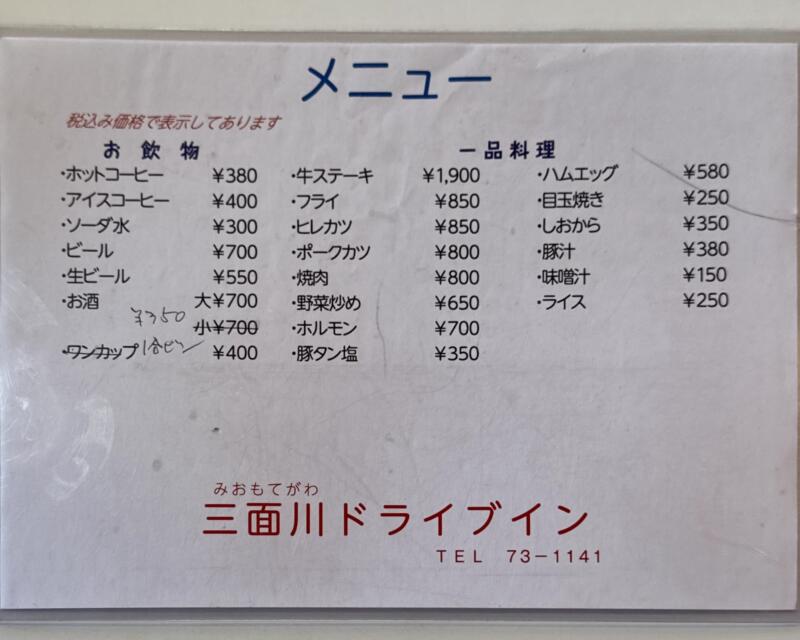 メニュー
税込み価格で表示してあります
お飲物
・ホットコーヒー ¥380
・アイスコーヒー ¥400
・ソーダ水 ¥300
・ビール ¥700
・生ビール ¥550
・お酒 大¥700
¥350
小¥700
・ワンカップ 1合ビン ¥400
一品料理
・牛ステーキ ¥1,900
・フライ ¥850
・ヒレカツ ¥850
・ポークカツ ¥800
・焼肉 ¥800
・野菜炒め ¥650
・ホルモン ¥700
・豚タン塩 ¥350
・ハムエッグ ¥580
・目玉焼き ¥250
・しおから ¥350
・豚汁 ¥380
・味噌汁 ¥150
・ライス ¥250
みおもてがわ
三面川ドライブイン
TEL 73-1141